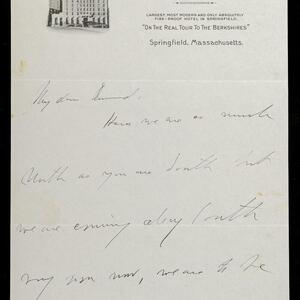 LARGEST, MOST MODERN AND ONLY ABSOLUTELY
FIRE-PROOF HOTEL IN SPRINGFIELD.
"ON THE REAL TOUR TO THE BERKSHIRES"
Springfield, Massachusetts.
My dear
Here we are as much
North as you are South but
we are coming along South
very soon now, we are to be